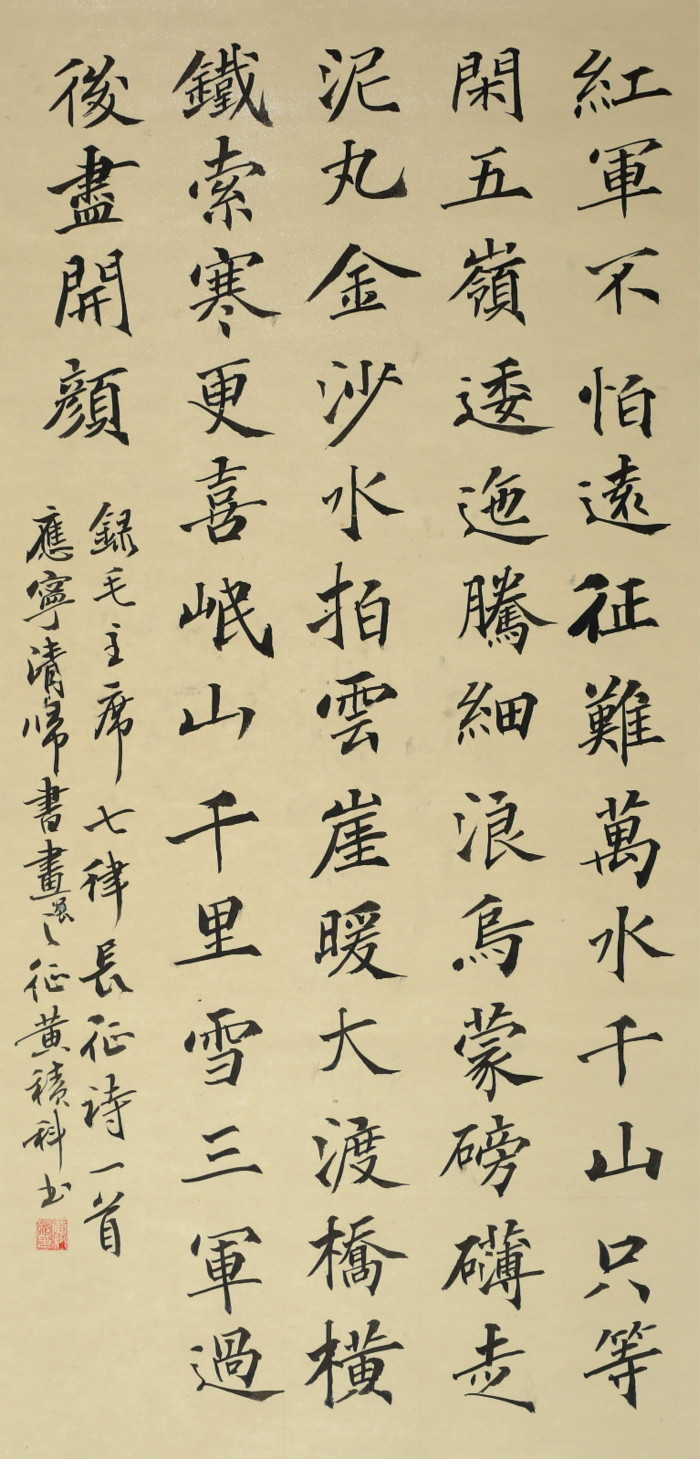 紅軍不怕遠征難萬水千山只等
閑五嶺逶迤騰細浪烏蒙磅礴走
泥丸金沙水拍雲崖暖大渡橋橫
鐵索寒更喜岷山千里雪三軍過
後盡開顏
錄毛主席七律長征詩一首
應寧清帰書畫展之征黄積科书